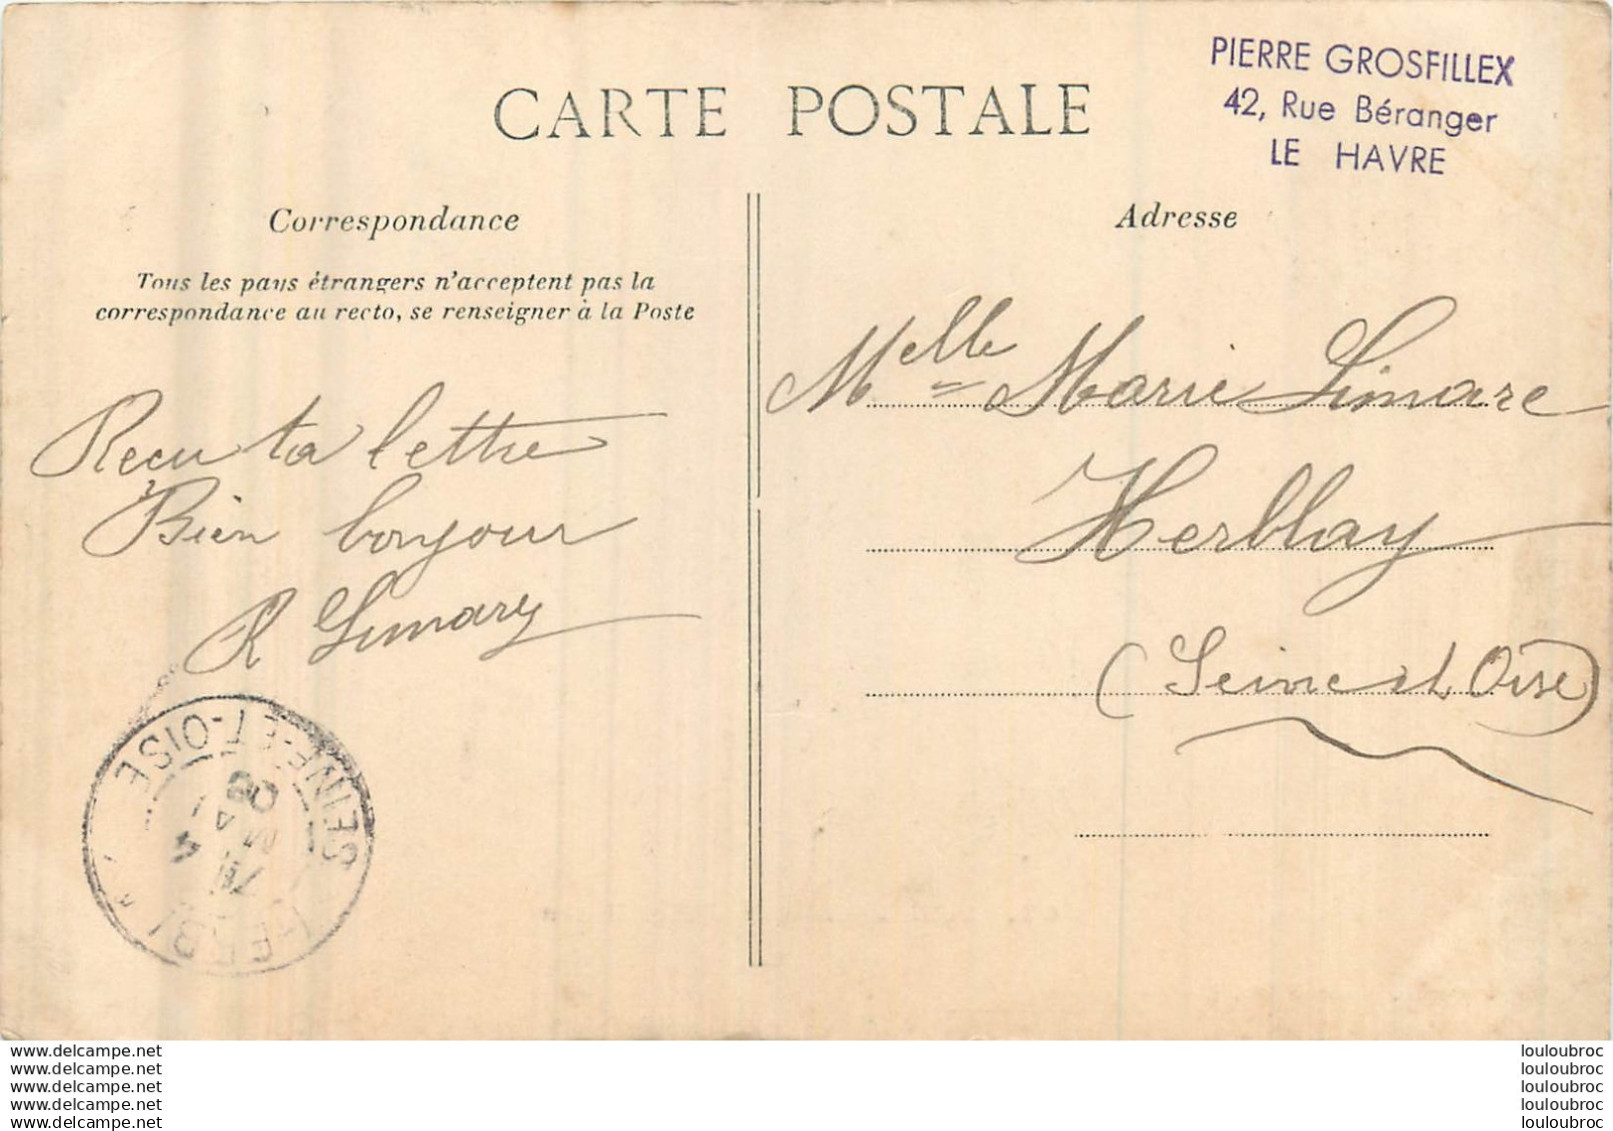 CARTE POSTALE
PIERRE GROSFILLEX
42, Rue Béranger
LE HAVRE
Correspondance
Tous les pays étrangers n'acceptent pas la
correspondance au recto, se renseigner à la Poste
Recu ta lettre
Bien bonjour
R
SEINE-ET-OISE
Adresse
Melle Marie Limare
Herblay
(Seine et Oise)
www.delcampe.net
www.delcampe.net
www.delcampe.net
www.delcampe.net
www.delcampe.net
louloubroc
louloubroc
louloubroc
louloubroc
louloubroc